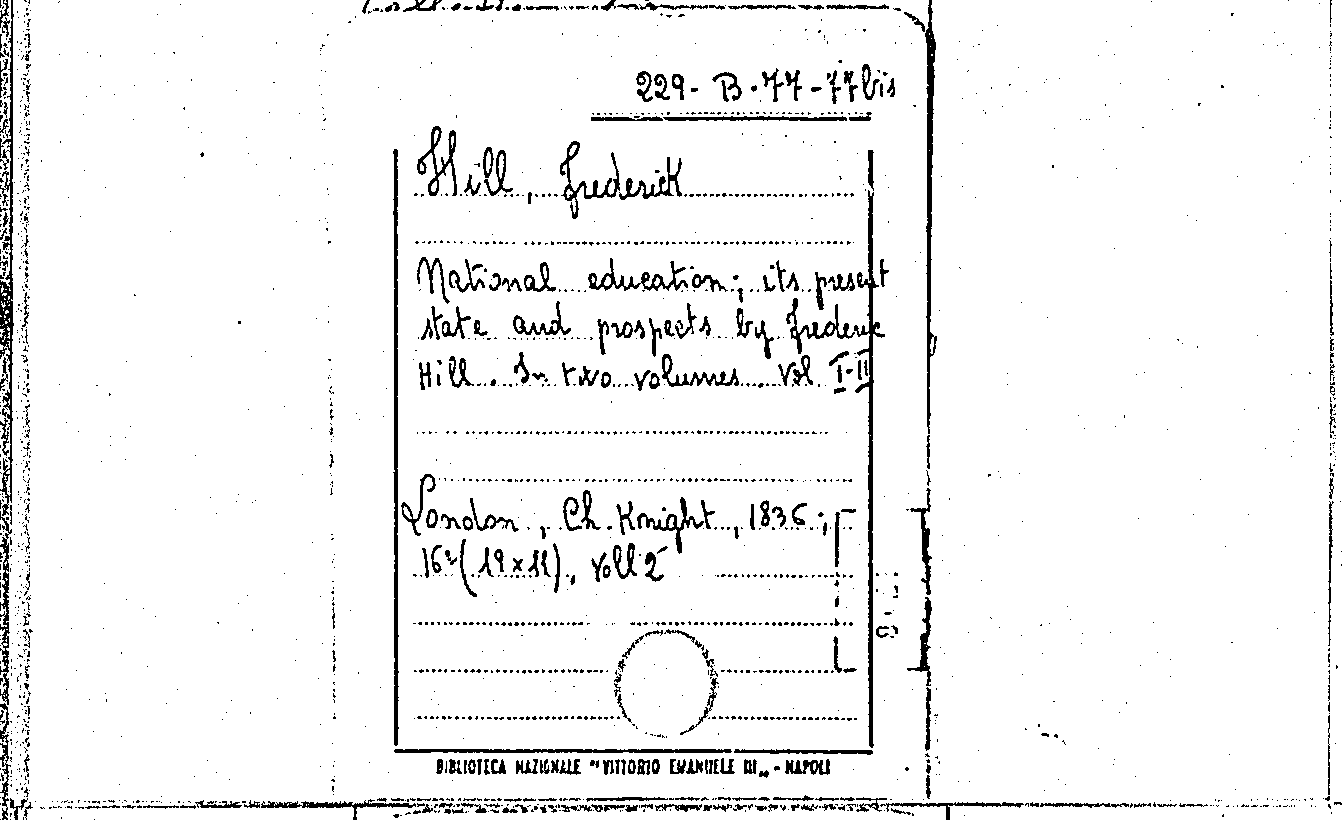 229-B-77-77bis
Hill, Frederick
National education; its present
state and prospects by Frederic
Hill. In two volumes. Vol I-II
London, Ch. Knight, 1836;
16º (19x11), voll 2
BIBLIOTECA NAZIONALE "VITTORIO EMANUELE III„ - NAPOLI